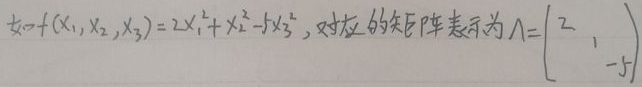 如f(x₁,x₂,x₃)=2x₁²+x₂²-5x₃²,对应的矩阵表示为Λ=(2 1 -5)